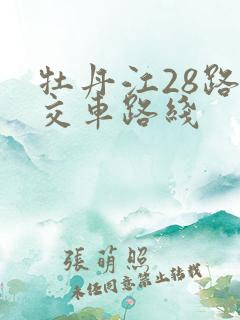 牡丹江28路
交车路线
張萌照
未经同意禁止转载